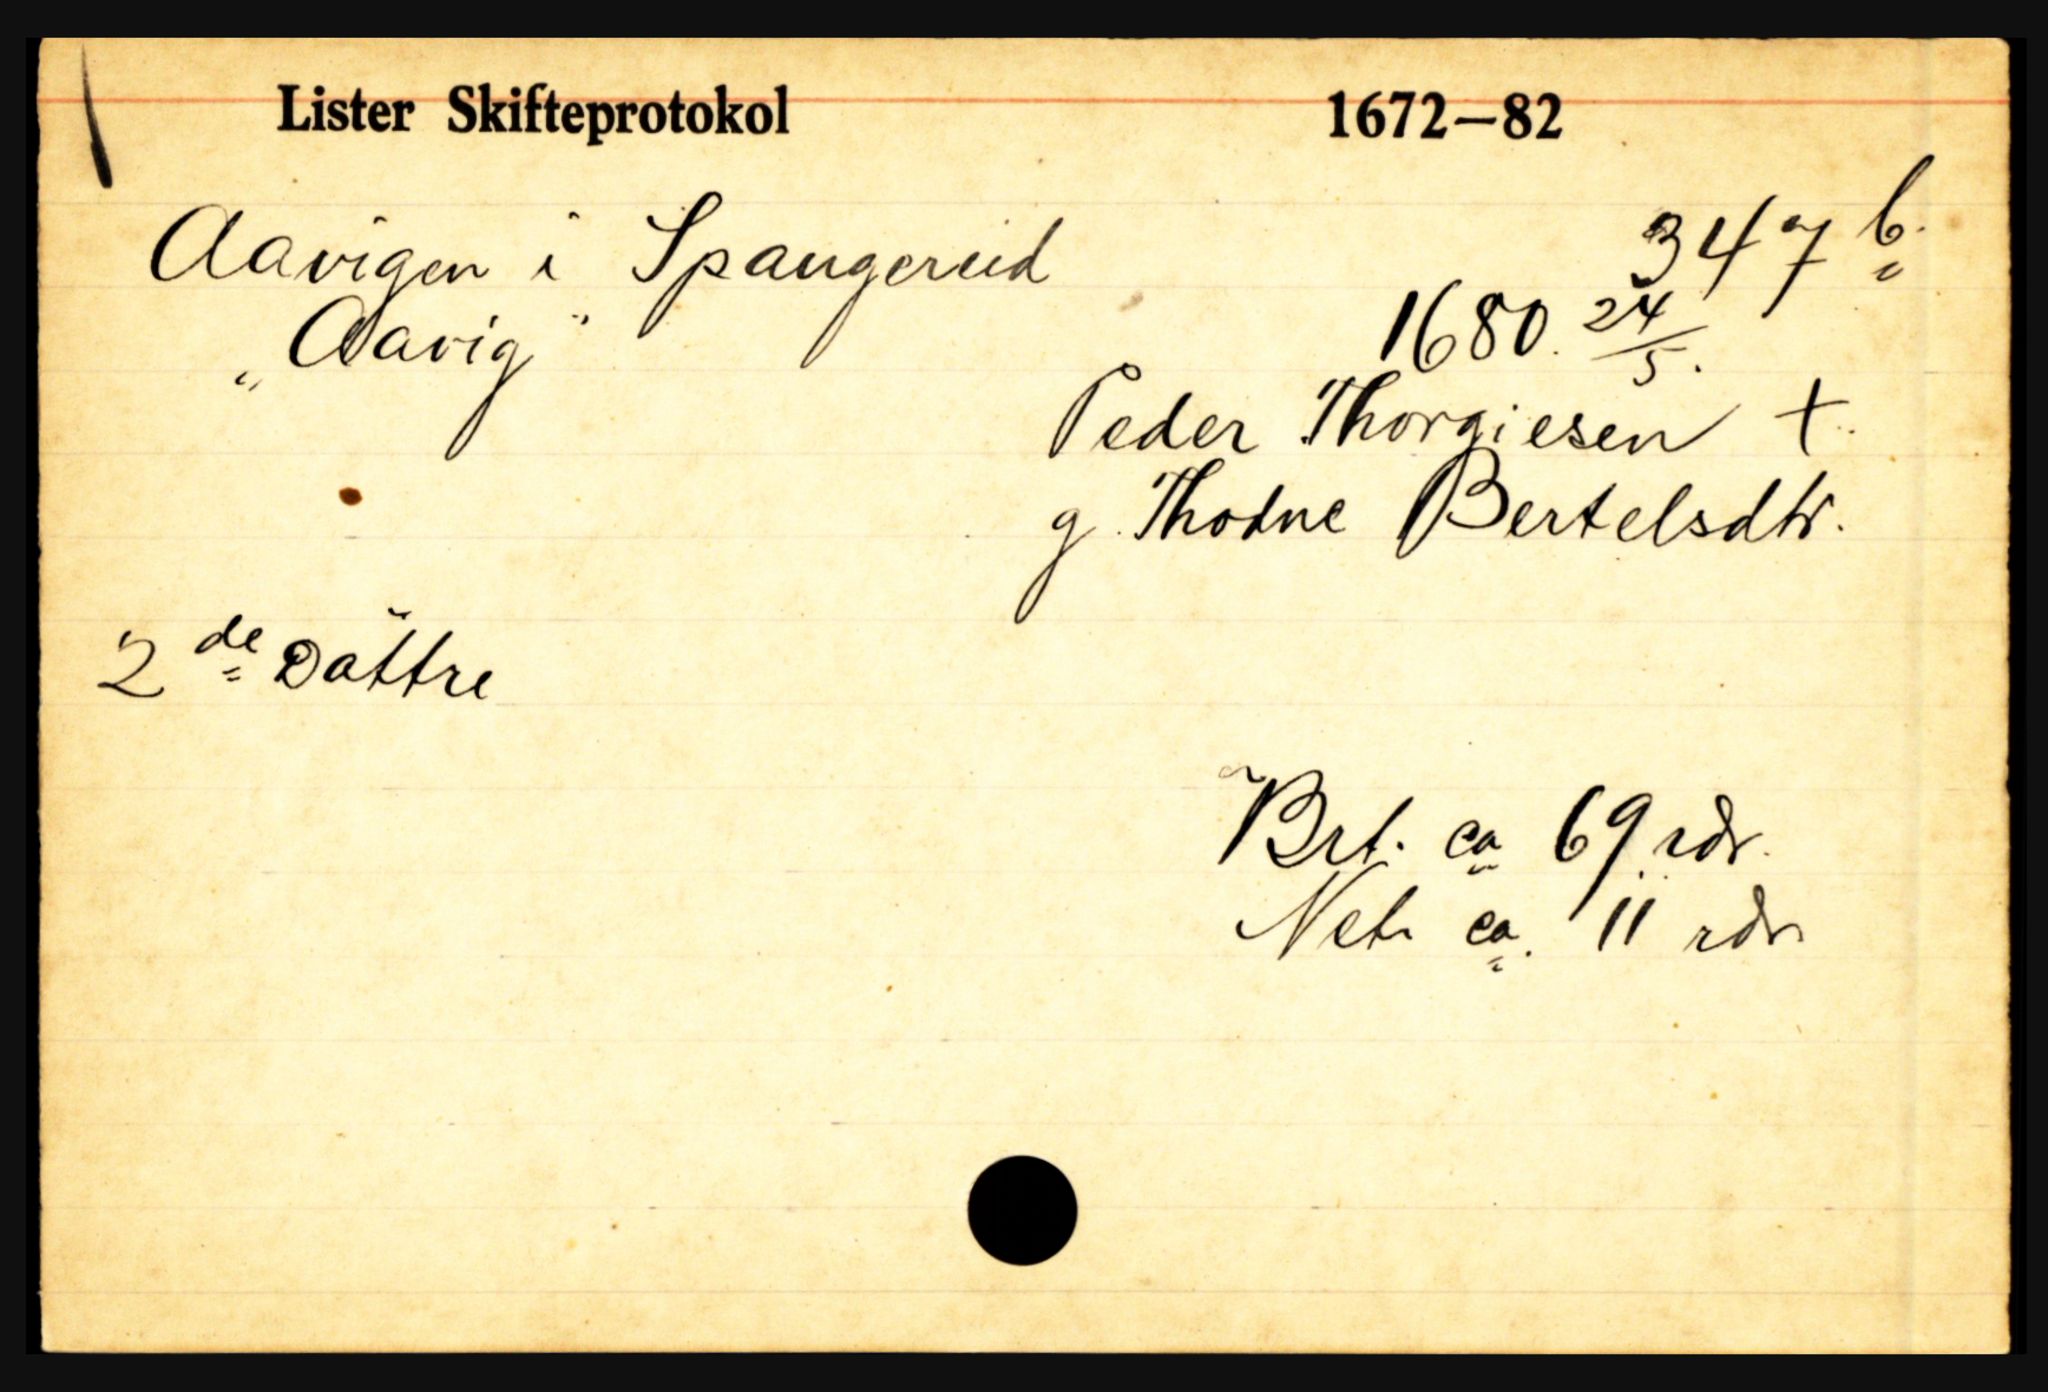 Lister Skifteprotokol 1672—82
Aavigen i Spangereid 347 b.
„Aavig” 1680. 24/5.
Peder Thorgiesen +.
g. Thodne Bertelsdtr.
2 de Dăttre
Brt. ca 69 rdr.
Net. ca. 11 rdr